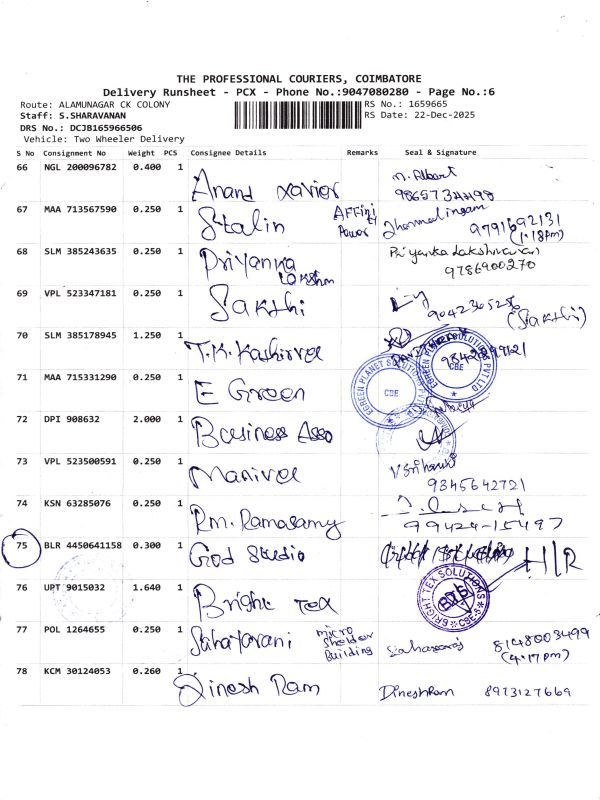 THE PROFESSIONAL COURIERS, COIMBATORE
Delivery Runsheet - PCX - Phone No.:9047080280 - Page No.:6
Route: ALAMUNAGAR CK COLONY RS No.: 1659665
Staff: S.SHARAVANAN RS Date: 22-Dec-2025
DRS No.: DCJB165966506
Vehicle: Two Wheeler Delivery
S No Consignment No Weight PCS Consignee Details Remarks Seal & Signature
66 NGL 200096782 0.400 1 Anand Xavior M. Albert
67 MAA 713567590 0.250 1 Stalin AFFini Power 9791692131
(1:18pm)
68 SLM 385243635 0.250 1 Priyanka Lakshm Priyanka Lakshmanan
9786900270
69 VPL 523347181 0.250 1 Sakthi 9042305286
(Sakthi)
70 SLM 385178945 1.250 1 T.K. Kathirvel
EGREEN PLANET SOLUTIONS PVT LTD
CBE
71 MAA 715331290 0.250 1 E Green
EGREEN PLANET SOLUTIONS PVT LTD
CBE
72 DPI 908632 2.000 1 Business Asso
73 VPL 523500591 0.250 1 Manivel
9345642721
74 KSN 63285076 0.250 1 Rm. Ramasamy
99424-15497
75 BLR 4450641158 0.300 1 God Studio H/R
76 UPT 9015032 1.640 1 Bright Tex
BRIGHT TEX SOLUTIONS
BTS
CBE-5
77 POL 1264655 0.250 1 Sahayarani micro Shelter Building 8148003499
(4:17pm)
78 KCM 30124053 0.260 1 Dinesh Ram DineshRam 8973127669